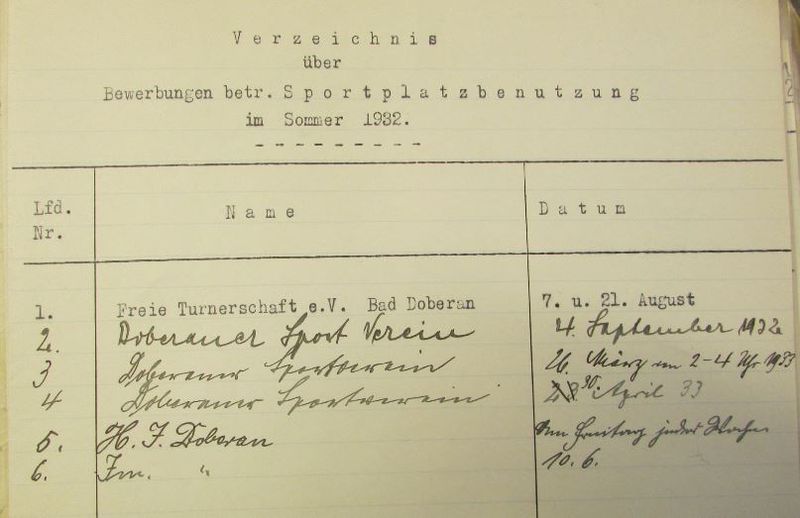 Verzeichnis
über
Bewerbungen betr. Sportplatzbenutzung
im Sommer 1932.
---------
Lfd. Nr. Name Datum
1. Freie Turnerschaft e.V. Bad Doberan 7. u. 21. August
2. Doberaner Sport Verein 4. September 1932
3 Doberaner Sportverein 26. März um 2-4 Uhr 1933
4 Doberaner Sportverein 30. April 33
5. H. J. Doberan Am Freitag jeder Woche
6. " 10.6.